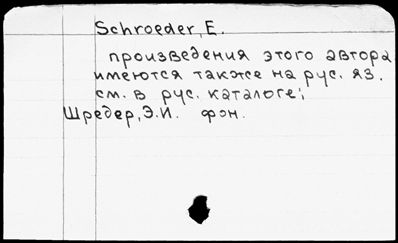 Schroeder, E.
произведения этого автора
имеются также на рус. яз.
см. в рус. каталоге;
Шредер, Э.И. фон.